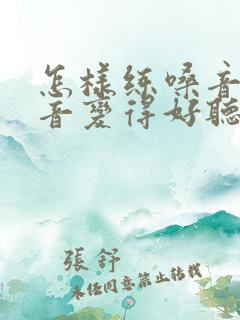 怎樣練嗓音
音變得好聽
張舒
未经同意禁止转载